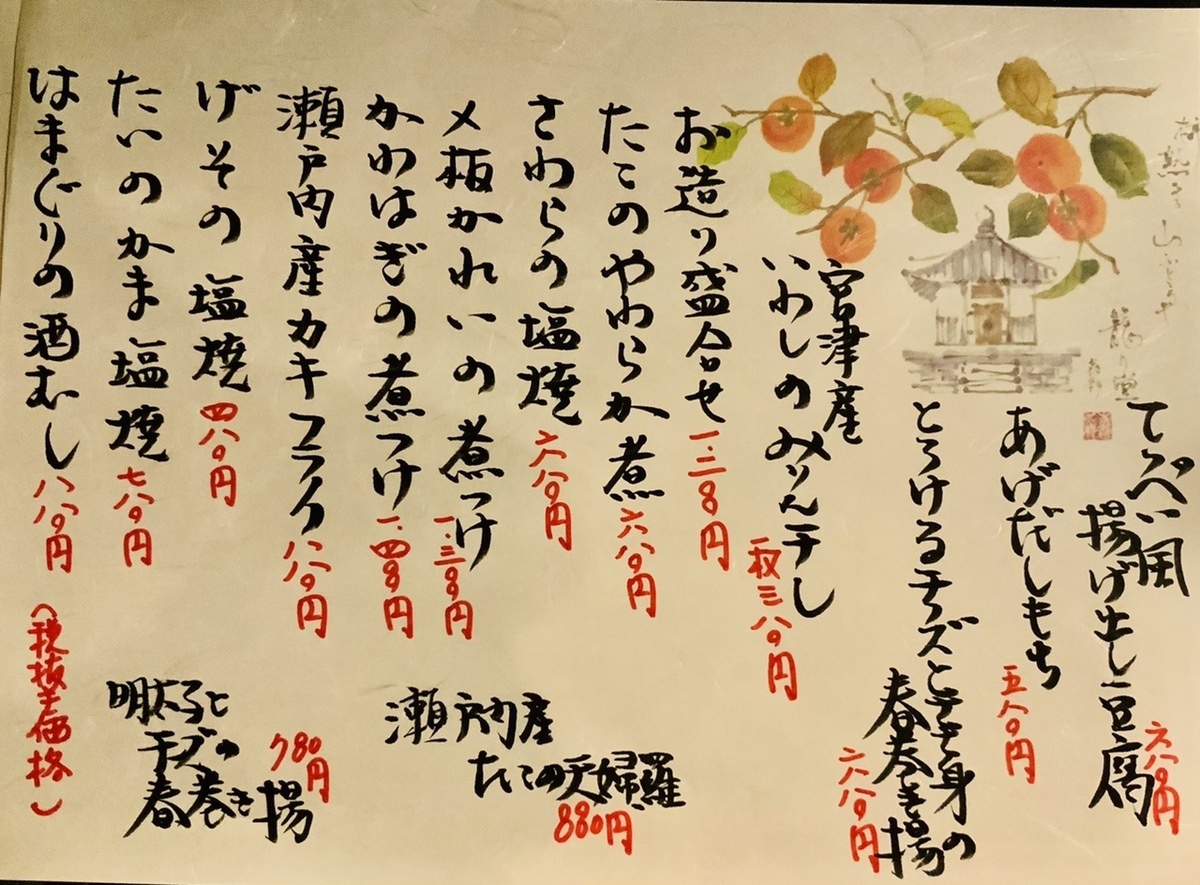 てっぺい風
揚げ出し豆腐
六八〇円
あげだしもち
五八〇円
とろけるチーズと
春巻き揚
六八〇円
宮津産
いわしのみりん干し
一枚三八〇円
お造り盛合せ
たこのやわらか煮
六八〇円
さわらの塩焼
六八〇円
〆板かれいの煮つけ
かわはぎの煮つけ
瀬戸内産カキフライ
八八〇円
げその塩焼
四八〇円
たいのかま塩焼
七八〇円
はまぐりの酒むし
八八〇円
瀬戸内産
たこの天婦羅
880円
明太子と
チーズの
春巻き揚
780円
(税抜き価格)